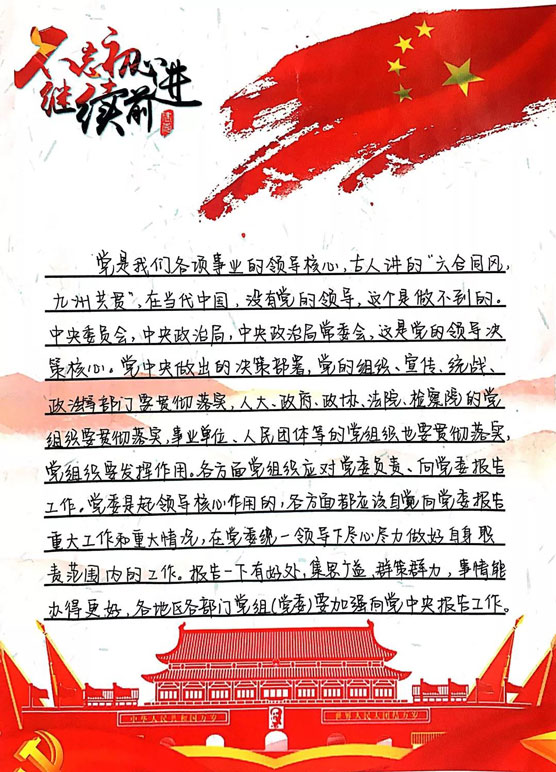 不忘初心
继续前进
党是我们各项事业的领导核心,古人讲的“六合同风,
九州共贯”,在当代中国,没有党的领导,这个是做不到的。
中央委员会,中央政治局,中央政治局常委会,这是党的领导决
策核心。党中央做出的决策部署,党的组织、宣传、统战、
政法等部门要贯彻落实,人大、政府、政协、法院、检察院的党
组织要贯彻落实,事业单位、人民团体等的党组织也要贯彻落实,
党组织要发挥作用。各方面党组织应对党委负责、向党委报告
工作。党委是起领导核心作用的,各方面都应该自觉向党委报告
重大工作和重大情况,在党委统一领导下尽心尽力做好自身职
责范围内的工作。报告一下有好处,集思广益、群策群力,事情能
办得更好,各地区各部门党组(党委)要加强向党中央报告工作。
中华人民共和国万岁 世界人民大团结万岁